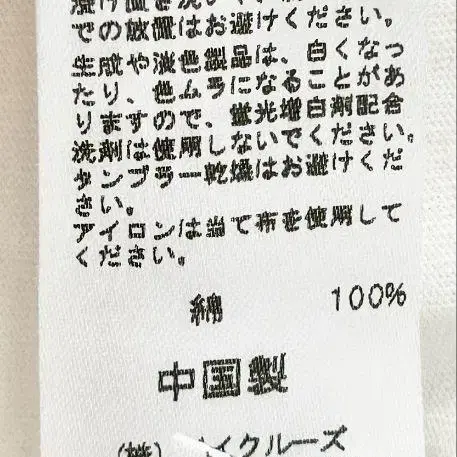 での放置はお避けください。
生成や淡色製品は、白くなっ
たり、色ムラになることがあ
りますので、蛍光増白剤配合
洗剤は使用しないでください。
タンブラー乾燥はお避けくだ
さい。
アイロンは当て布を使用して
ください。
綿 100%
中国製
(株) イクルーズ